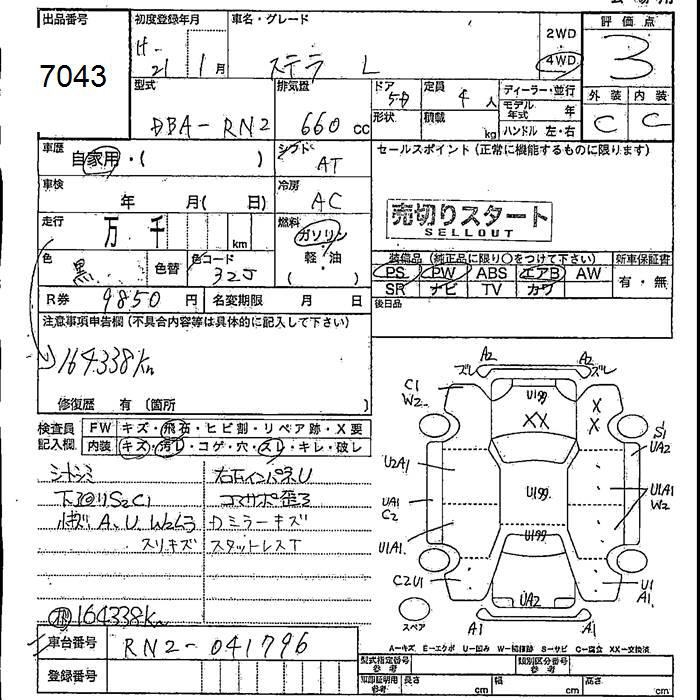 出品番号
7043
初度登録年月
H-21
1月
車名・グレード
ステラ L
2WD
4WD
評価点
3
型式
DBA-RN2
排気量
660cc
ドア
5D
定員
4人
形状
積載
kg
ディーラー・並行
モデル年式
年
ハンドル 左・右
外装
内装
C
C
車歴
自家用・( )
シフト
AT
セールスポイント(正常に機能するものに限ります)
車検
年 月( 日)
冷房
AC
売切りスタート
SELLOUT
走行
万 千
km
燃料
ガソリン
軽・油
( )
色
黒
色替
色コード
32J
装備品(純正品に限り○をつけて下さい)
PS PW ABS エアB AW
SR ナビ TV カワ
新車保証書
有・無
R券
9850円
名変期限 月 日
後日品
注意事項申告欄(不具合内容等は具体的に記入して下さい)
164338km
修復歴 有(箇所 )
検査員記入欄
FW キズ・飛石・ヒビ割・リペア跡・X要
内装 キズ・汚レ・コゲ・穴・スレ・キレ・破レ
S2C1
A、U、W2
スリキズ
コアサポ歪ミ
Dミラーキズ
スタットレスT
164338km
車台番号
RN2-041796
登録番号
A2
ズレ
A2
ズレ
C1
W2
U199
XX
X
X
S1
UA2
U2A1
UA1
C2
U199
U1A1
W2
U1A1
U199
C2U1
UA2
U1
A1
スペア
A1
A1
A=キズ E=エクボ U=凹み W=補修跡 S=サビ C=腐食 XX=交換済
型式指定番号
参考
類別区分番号
参考
印印証明用
参考
長さ
cm
幅
cm
高さ
cm